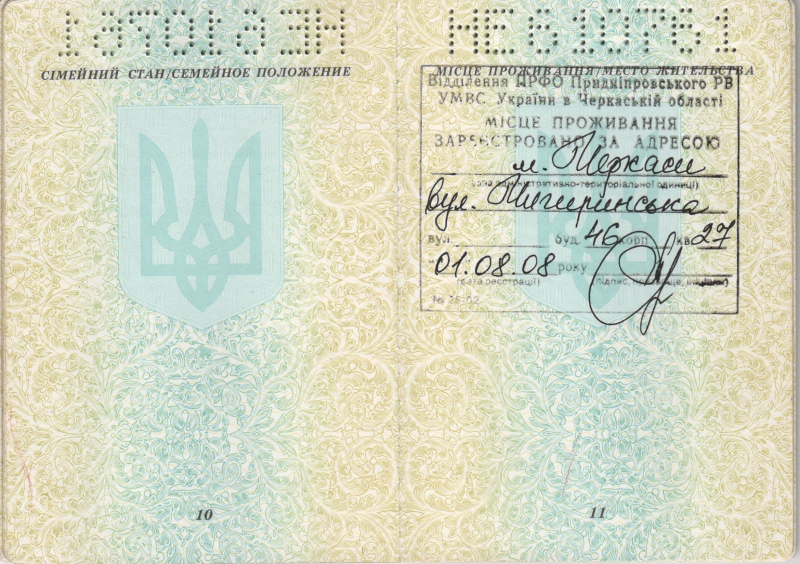 НЕ610761
СІМЕЙНИЙ СТАН/СЕМЕЙНОЕ ПОЛОЖЕНИЕ
10
НЕ610761
МІСЦЕ ПРОЖИВАННЯ/МЕСТО ЖИТЕЛЬСТВА
Відділення ПРФО Придніпровського РВ
УМВС України в Черкаській області
МІСЦЕ ПРОЖИВАННЯ
ЗАРЕЄСТРОВАНО ЗА АДРЕСОЮ
м. Черкаси
(назва адміністративно-територіальної одиниці)
вул. Чигиринська
вул. буд. 46 корп. кв. 27
01.08.08 року
(дата реєстрації) (підпис, прізвище, ініціали)
№
11